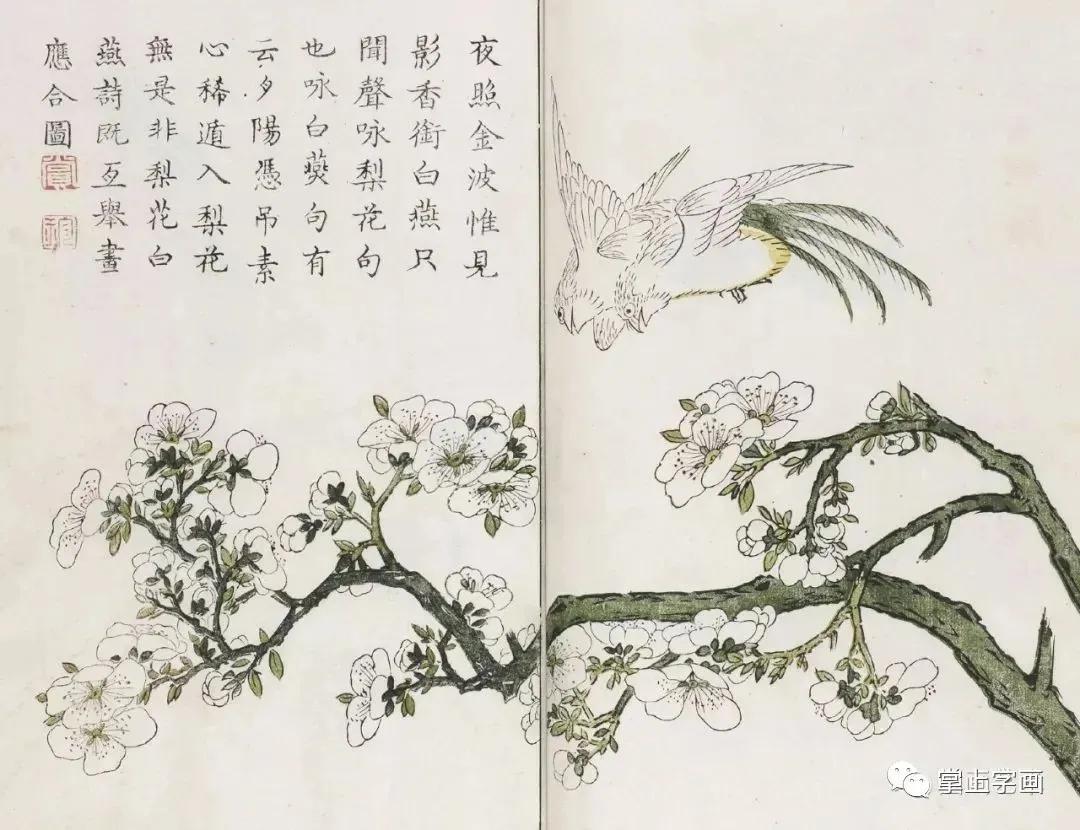 夜照金波惟見
影香銜白燕只
聞聲咏梨花句
也咏白燕句有
云夕陽憑吊素
心稀遁入梨花
無是非梨花白
燕詩既互舉畫
應合圖
掌上学画